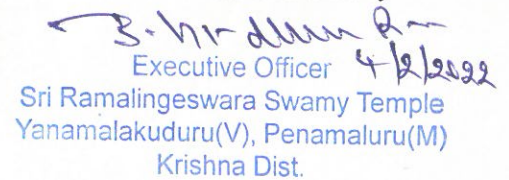 4/2/2022
Executive Officer
Sri Ramalingeswara Swamy Temple
Yanamalakuduru(V), Penamaluru(M)
Krishna Dist.